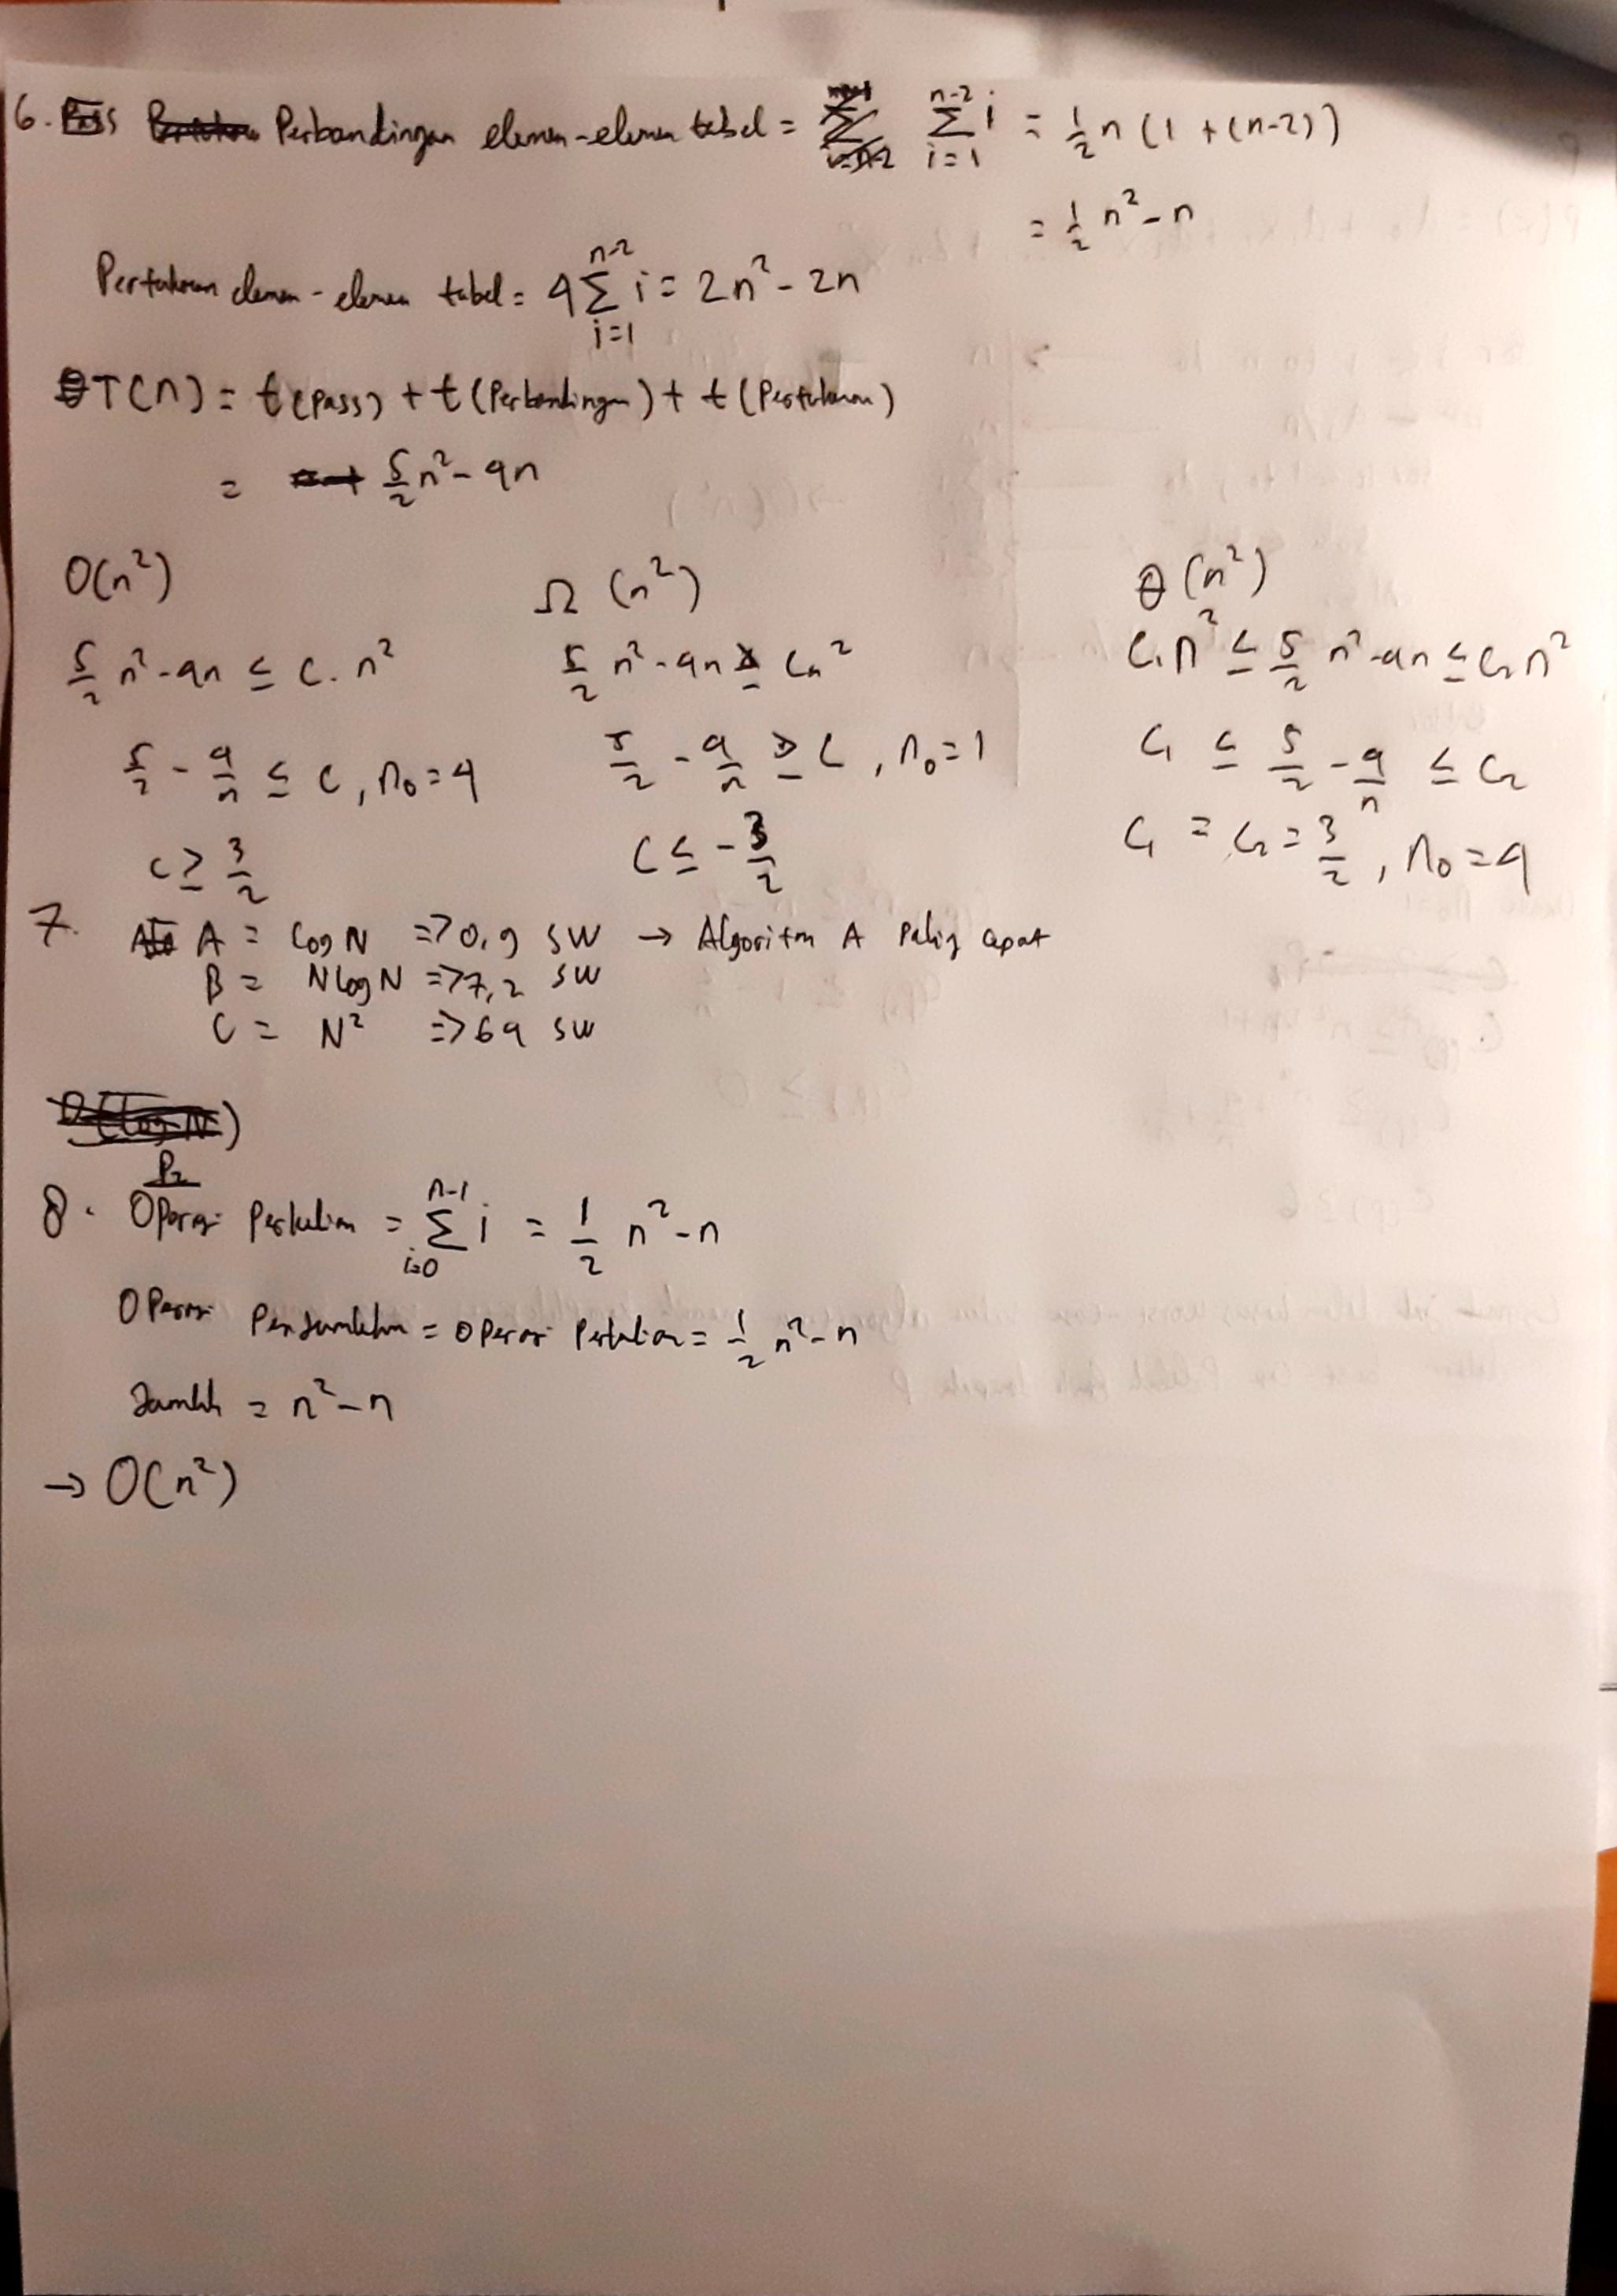 6. Perbandingan elemen-elemen tabel = n-2 Σ i=1 i = 1/2 n (1 + (n-2))
= 1/2 n² - n
Pertukaran elemen-elemen tabel = 4 n-2 Σ i=1 i = 2n² - 2n
T(n) = t(Pass) + t(Perbandingan) + t(Pertukaran)
= 5/2 n² - 4n
O(n²) Ω (n²) θ (n²)
5/2 n² - 4n ≤ c. n² 5/2 n² - 4n ≥ Cn² C₁n² ≤ 5/2 n² - 4n ≤ C₂n²
5/2 - 4/n ≤ c, n₀ = 4 5/2 - 4/n ≥ C, n₀ = 1 C₁ ≤ 5/2 - 4/n ≤ C₂
c ≥ 3/2 C ≤ -3/2 C₁ = C₂ = 3/2, n₀ = 4
7. A = log N => 0,9 SW → Algoritm A Palig cepat
B = N log N => 7,2 SW
C = N² => 64 SW
P₂
8. Operasi Perkalian = n-1 Σ i=0 i = 1/2 n² - n
Operasi Penjumlahan = Operasi Perkalian = 1/2 n² - n
Jumlah = n² - n
→ O(n²)